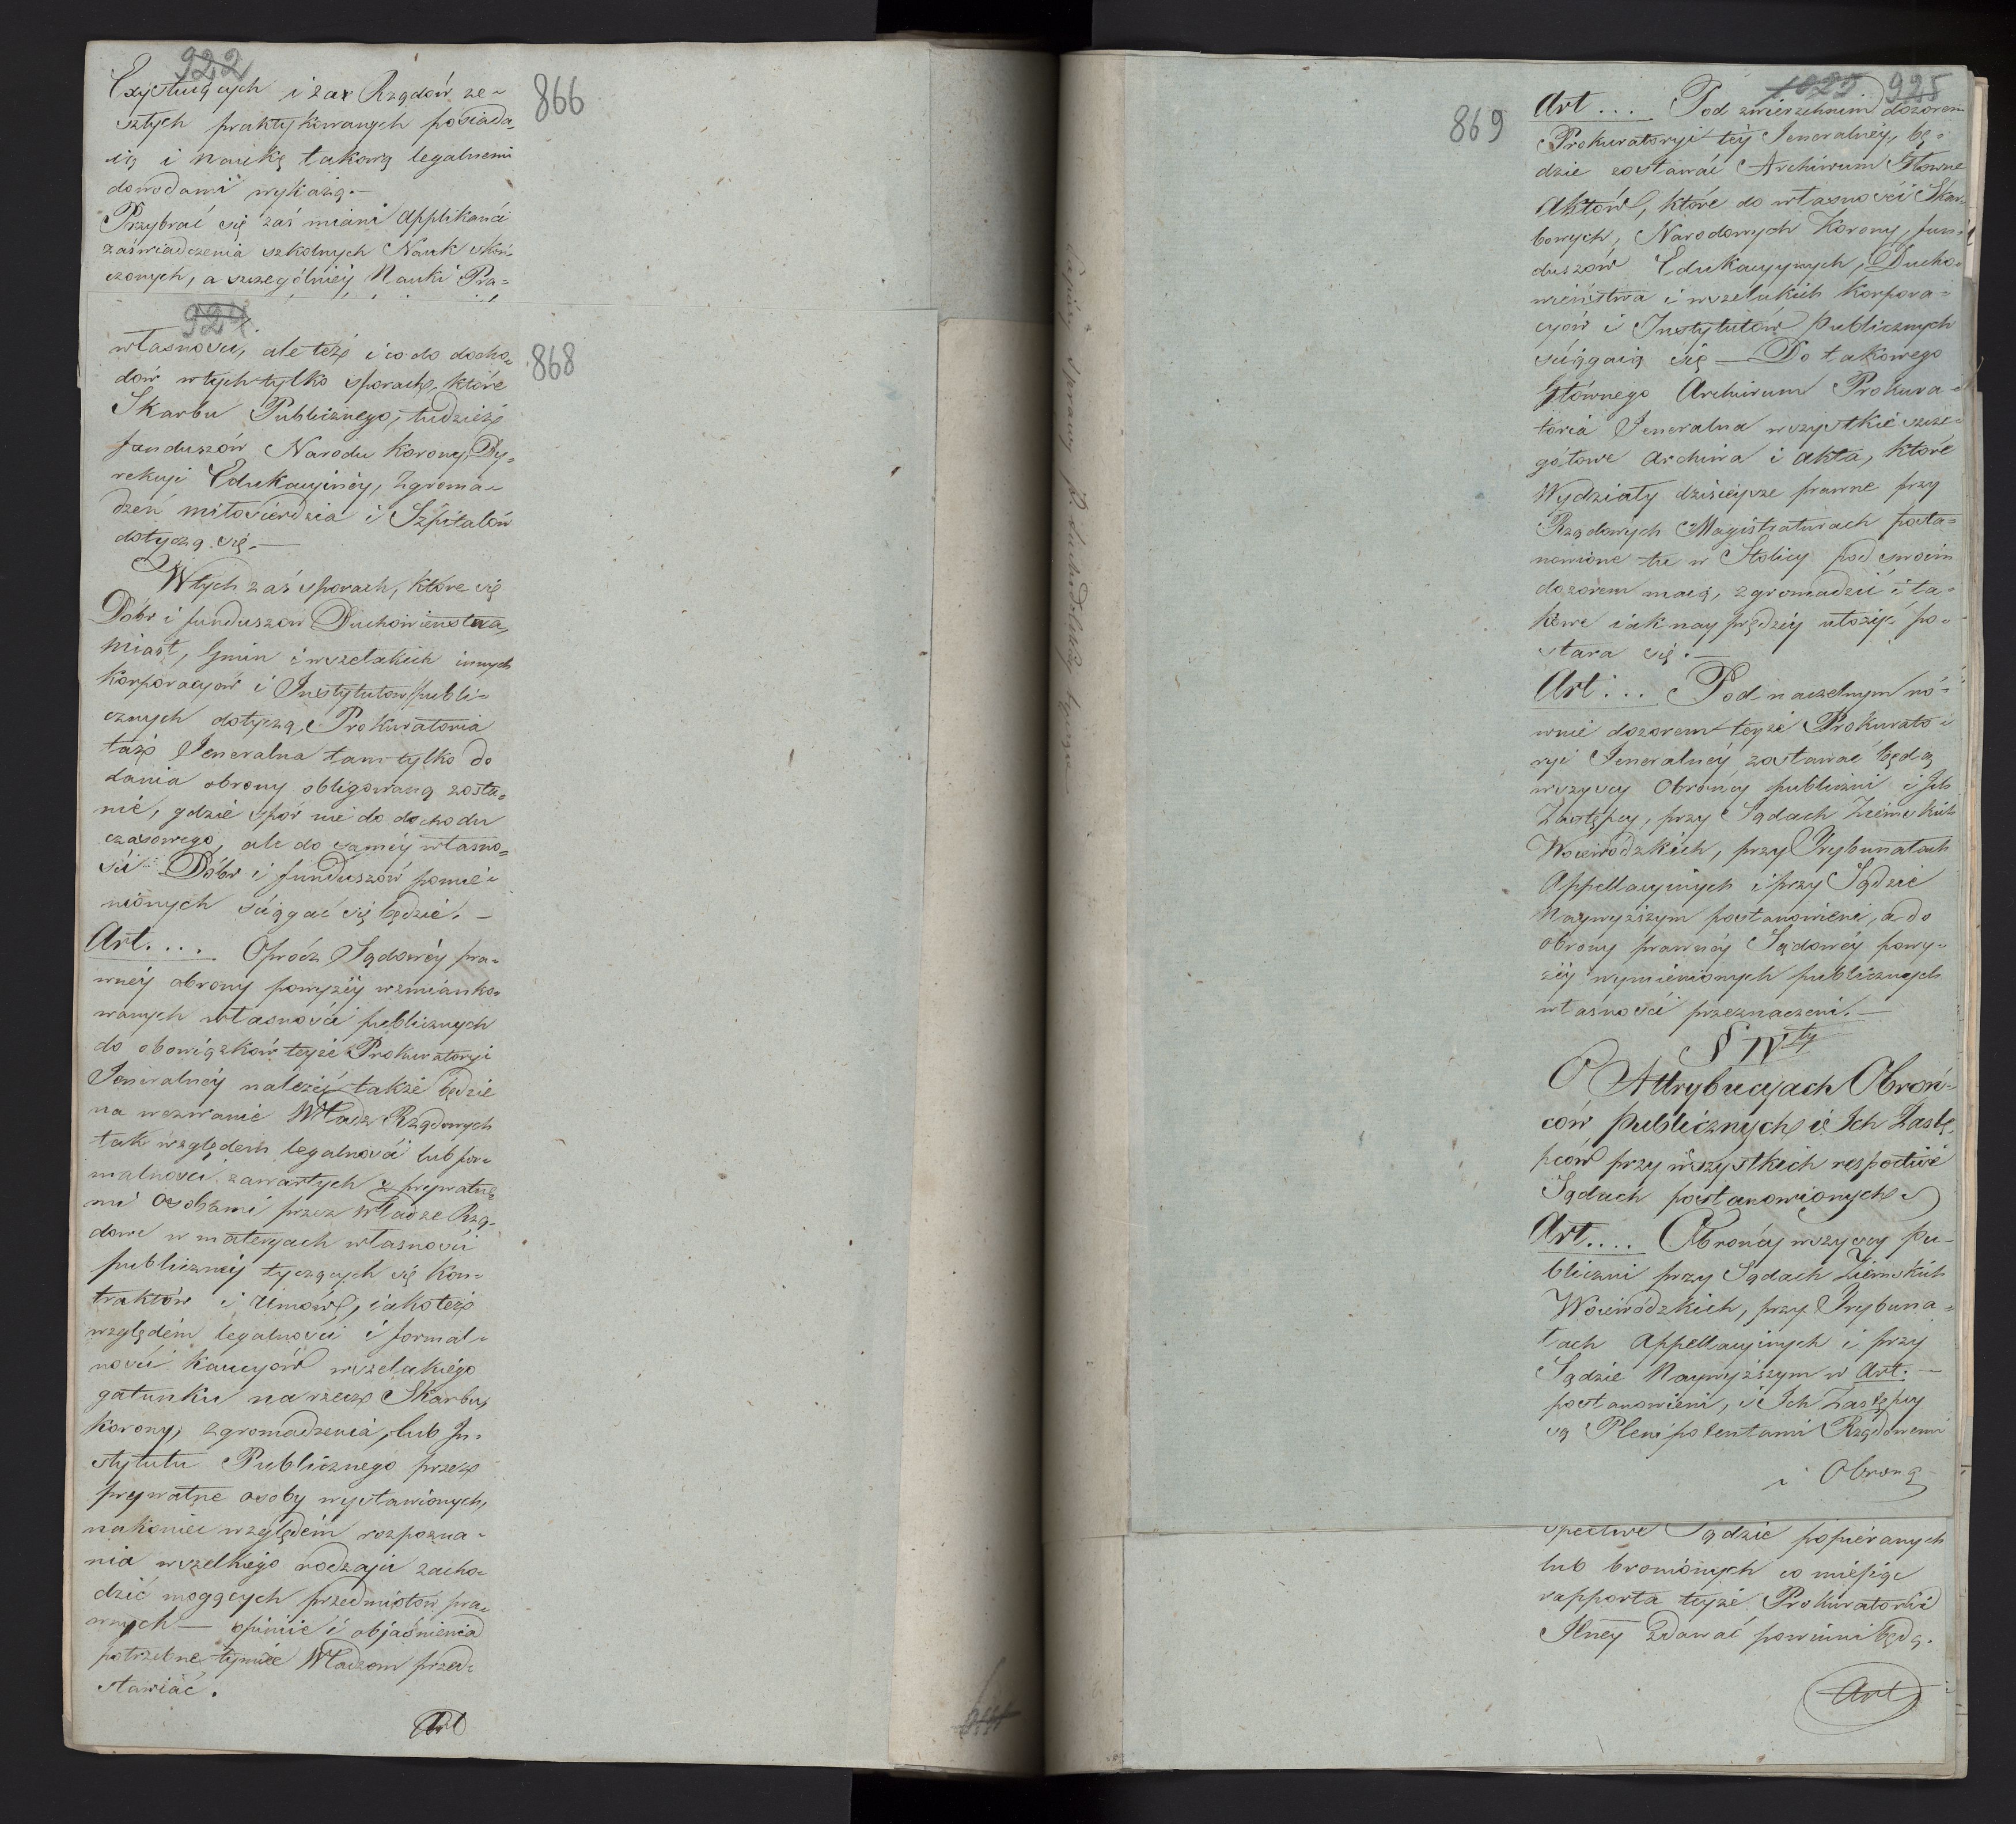 922
Exystuiących i zax Rządów ze-
szłych praktykowanych posiada-
ią i naukę takową legalnemi
dowodami wykażą.—
Przybrać się zaś miani Applikanci
zaświadczenia szkolnych Nauk skoń-
czonych, a szczególniey Nauki Pra-
866
924
własności, ale też i co do docho-
dów w tych tylko sporach, które
Skarbu Publicznego, tudzież
funduszów Narodu Korony, Dy-
rekcyi Edukacyiney, Zgroma-
dzeń miłosierdzia i Szpitalów
dotyczą się.—
W tych zaś sporach, które się
Dóbr i funduszow Duchowieństwa,
miast, Gmin i wszelakich innych
Korporacyów i Instytutow publi-
cznych dotyczą, Prokuratoria
taż Jeneralna tam tylko do
dania obrony obligowaną zosta-
nie, gdzie spór nie do dochodu
czasowego, ale do saméy własno-
ści Dóbr i funduszów pomie-
nionych ściągać się będzie.—
Art. ... Oprócz Sądowéy pra-
wnéy obrony powyżéy wzmianko-
wanych własności publicznych
do obowiązków teyże Prokuratoryi
Jeneralnéy należéć także będzie
na wezwanie Władz Rządowych
tak względem legalności lub for-
malności zawartych z prywatne-
mi Osobami przez Władze Rzą-
dowe w materyach własności
publicznéy tyczących się Kon-
traktów i Umów, iakoteż
względem legalności i formal-
ności Kaucyów wszelakiego
gatunku na rzecz Skarbu,
Korony, zgromadzenia, lub In-
stytutu Publicznego przez
prywatne osoby wystawionych,
nakoniec względem rozpozna-
nia wszelkiego rodzaju zacho-
dzić mogących przedmiotów pra-
wnych — opinie i objaśnienia
potrzebne tymże Władzom przed-
stawiać.
Art
868
869
1025 925
Art ... Pod zwierzchnim dozorem
Prokuratoryi téy Jeneralnéy, bę-
dzie zostawać Archiwum Główne
Aktów, które do własności Skar-
bowych, Narodowych Korony, fun-
duszów Edukacyynych, Ducho-
wieństwa i wszelakich Korpora-
cyów i Instytutów Publicznych
ściągaią się — Do takowego
Głównego Archiwum Prokura-
toria Jeneralna wszystkie szcze-
gółowe Archiwa i akta, które
Wydziały dzisieysze prawne przy
Rządowych Magistraturach posta-
nowione tu w Stolicy pod swoim
dozorem maią, zgromadzić i ta-
kowe iak nayprędzéy ułożyć po-
stara się.—
Art ... Pod naczelnym ró-
wnie dozorem teyże Prokurato-
ryi Jeneralnéy zostawać będą
wszyscy Obrońcy publiczni i Ich
Zastępcy, przy Sądach Ziemskich
Woiewódzkich, przy Trybunałach
Appellacyinych i przy Sądzie
Naywyższym postanowieni, a do
obrony prawnéy Sądowéy powy-
żéy wymienionych publicznych
własności przeznaczeni.—
§ IVty
O Attrybucyach Obroń-
ców Publicznych i Ich Zastę-
pców przy wszystkich respective
Sądach postanowionych
Art.... Obrońcy wszyscy Pu-
bliczni przy Sądach Ziemskich
Woiewódzkich, przy Trybuna-
łach Appellacyinych i przy
Sądzie Naywyższym w Art. —
postanowieni, i Ich Zastępcy
są Plenipotentami Rządowemi
i Obroną
spective Sądzie popieranych
lub bronionych co miesiąc
rapporta teyże Prokuratorii
Jlney zdawać powinni będą.
Art